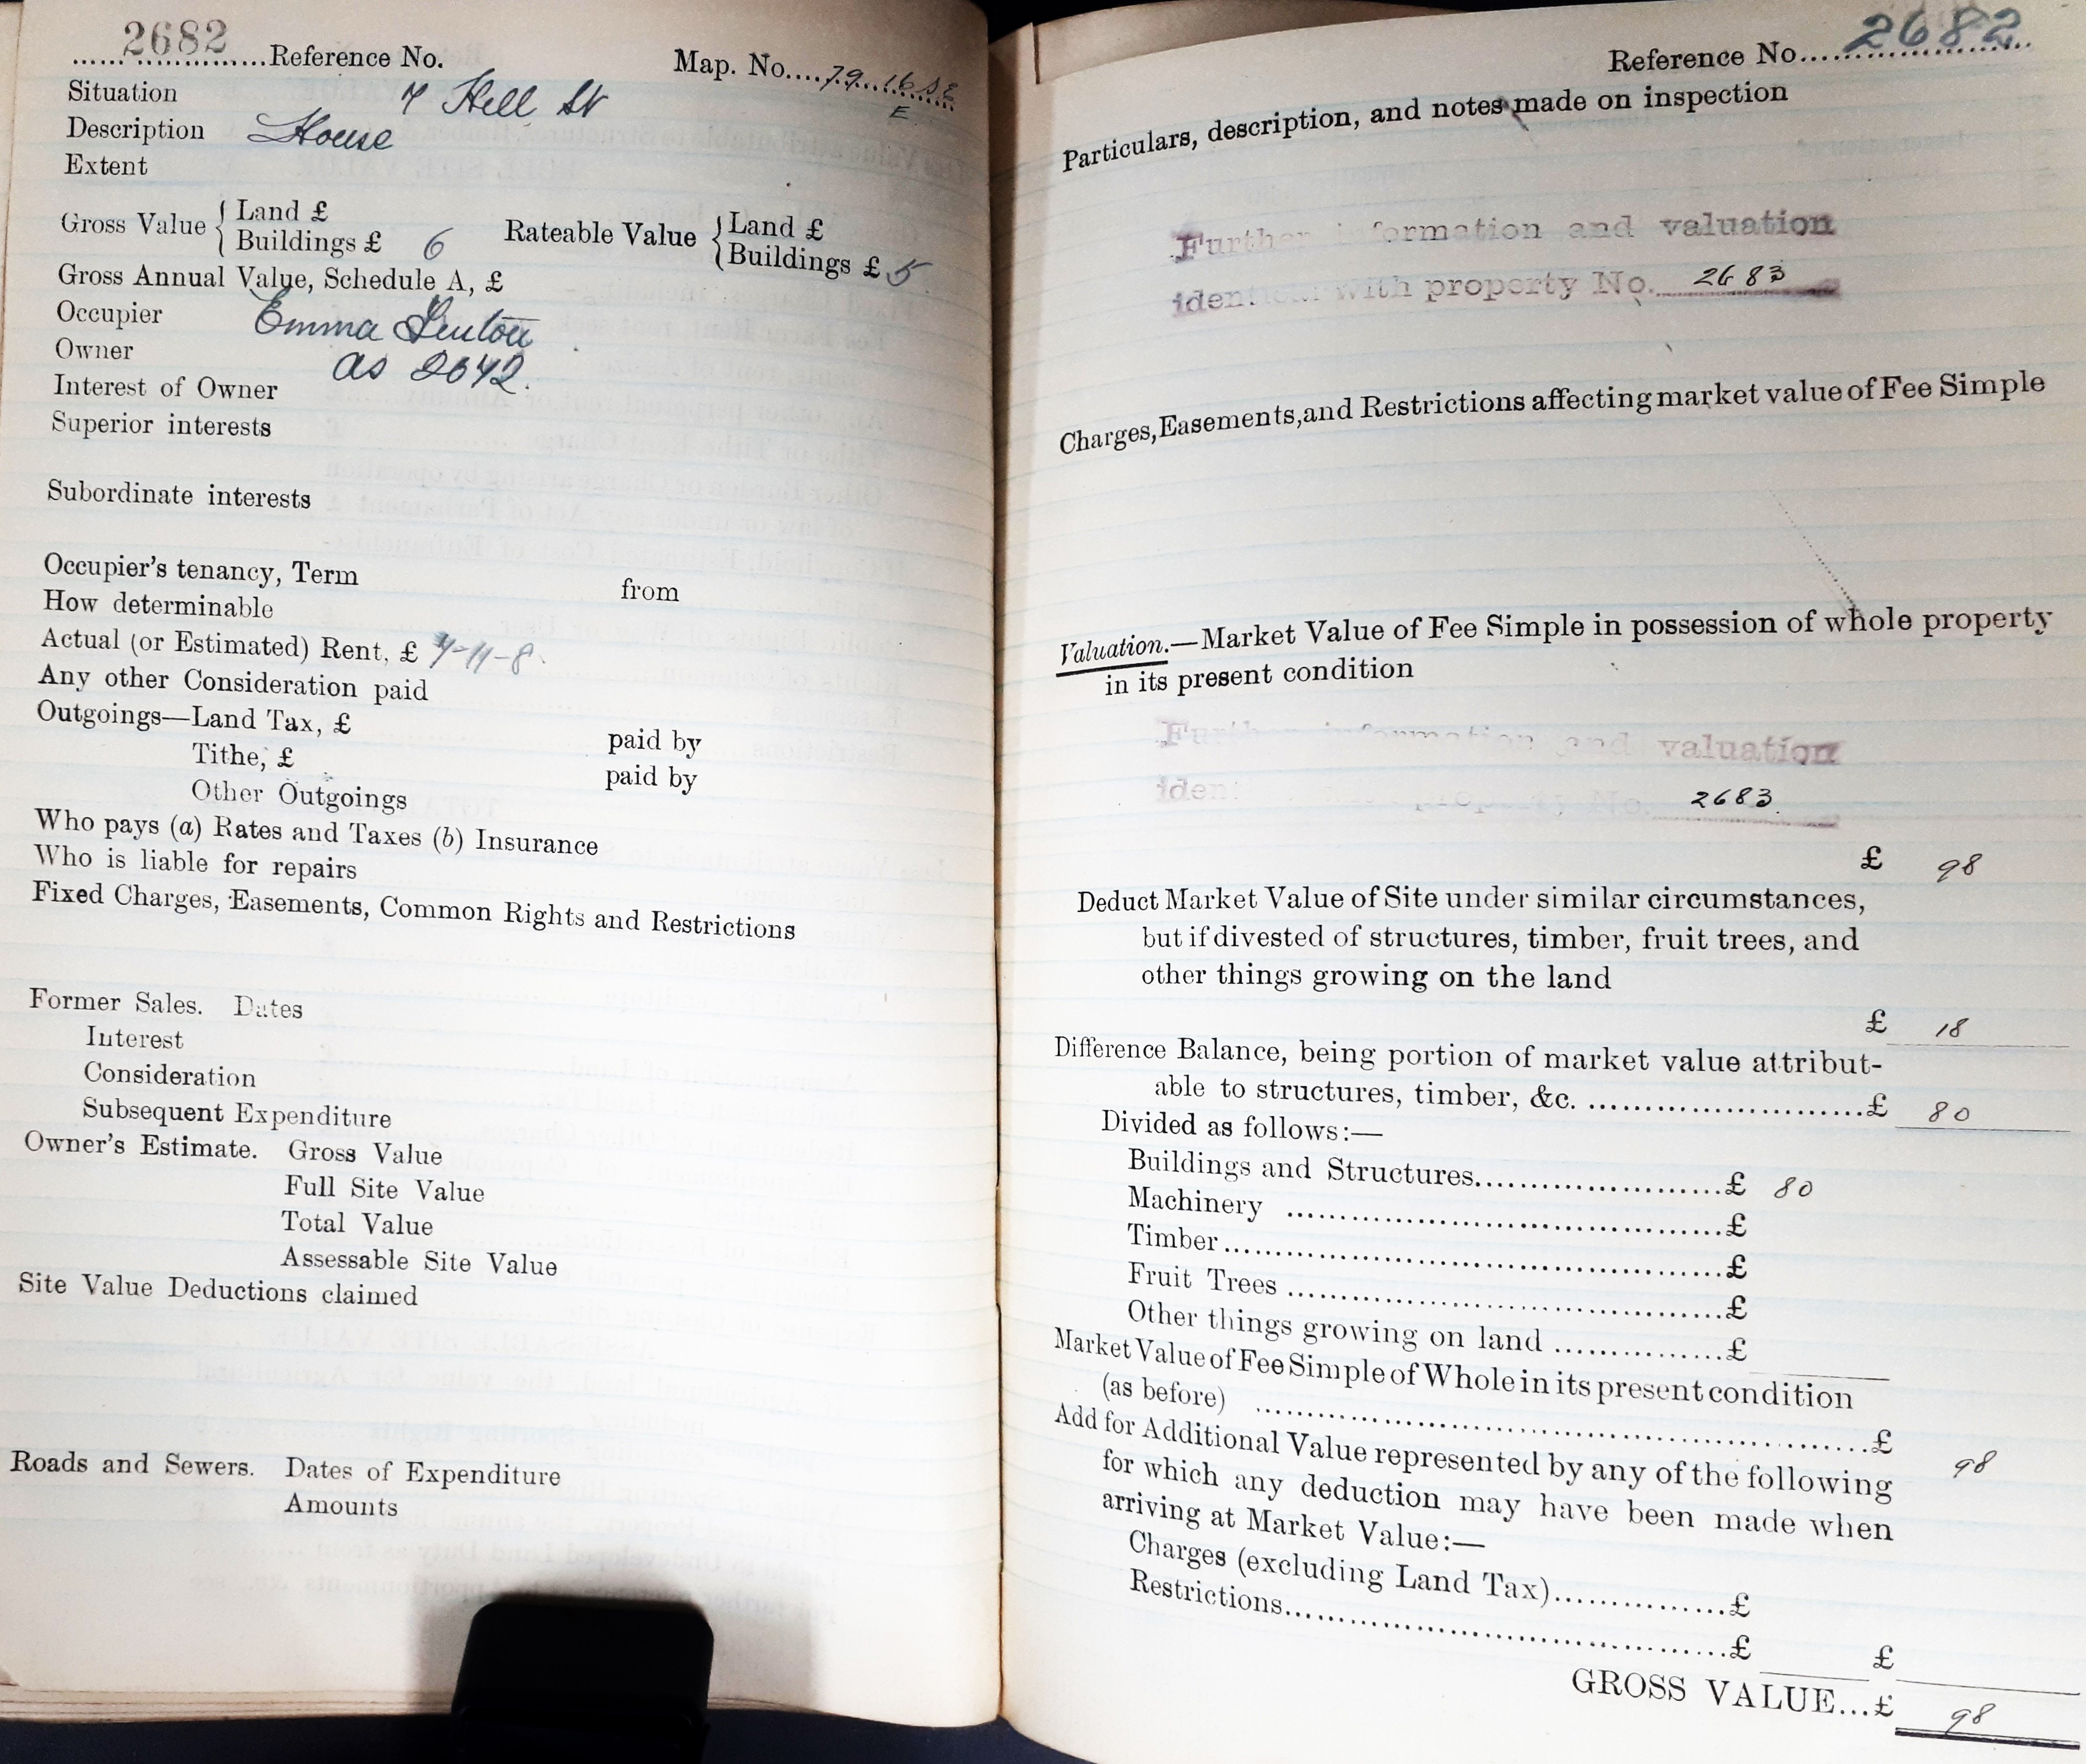 2682 Reference No. Map. No. 79.16 SE
E
Situation 7 Hill St
Description House
Extent
Gross Value { Land £
Buildings £ 6
Rateable Value { Land £
Buildings £ 5
Gross Annual Value, Schedule A, £
Occupier Emma
Owner as 2642.
Interest of Owner
Superior interests
Subordinate interests
Occupier's tenancy, Term from
How determinable
Actual (or Estimated) Rent, £ 7-11-8.
Any other Consideration paid
Outgoings—Land Tax, £ paid by
Tithe, £ paid by
Other Outgoings
Who pays (a) Rates and Taxes (b) Insurance
Who is liable for repairs
Fixed Charges, Easements, Common Rights and Restrictions
Former Sales. Dates
Interest
Consideration
Subsequent Expenditure
Owner's Estimate. Gross Value
Full Site Value
Total Value
Assessable Site Value
Site Value Deductions claimed
Roads and Sewers. Dates of Expenditure
Amounts
Reference No. 2682
Particulars, description, and notes made on inspection
Further information and valuation
identical with property No. 2683
Charges, Easements, and Restrictions affecting market value of Fee Simple
Valuation.—Market Value of Fee Simple in possession of whole property
in its present condition
Further information and valuation
identical with property No. 2683.
£ 98
Deduct Market Value of Site under similar circumstances,
but if divested of structures, timber, fruit trees, and
other things growing on the land
£ 18
Difference Balance, being portion of market value attribut-
able to structures, timber, &c. £ 80
Divided as follows:—
Buildings and Structures £ 80
Machinery £
Timber £
Fruit Trees £
Other things growing on land £
Market Value of Fee Simple of Whole in its present condition
(as before) £ 98
Add for Additional Value represented by any of the following
for which any deduction may have been made when
arriving at Market Value:—
Charges (excluding Land Tax) £
Restrictions £ £
GROSS VALUE...£ 98